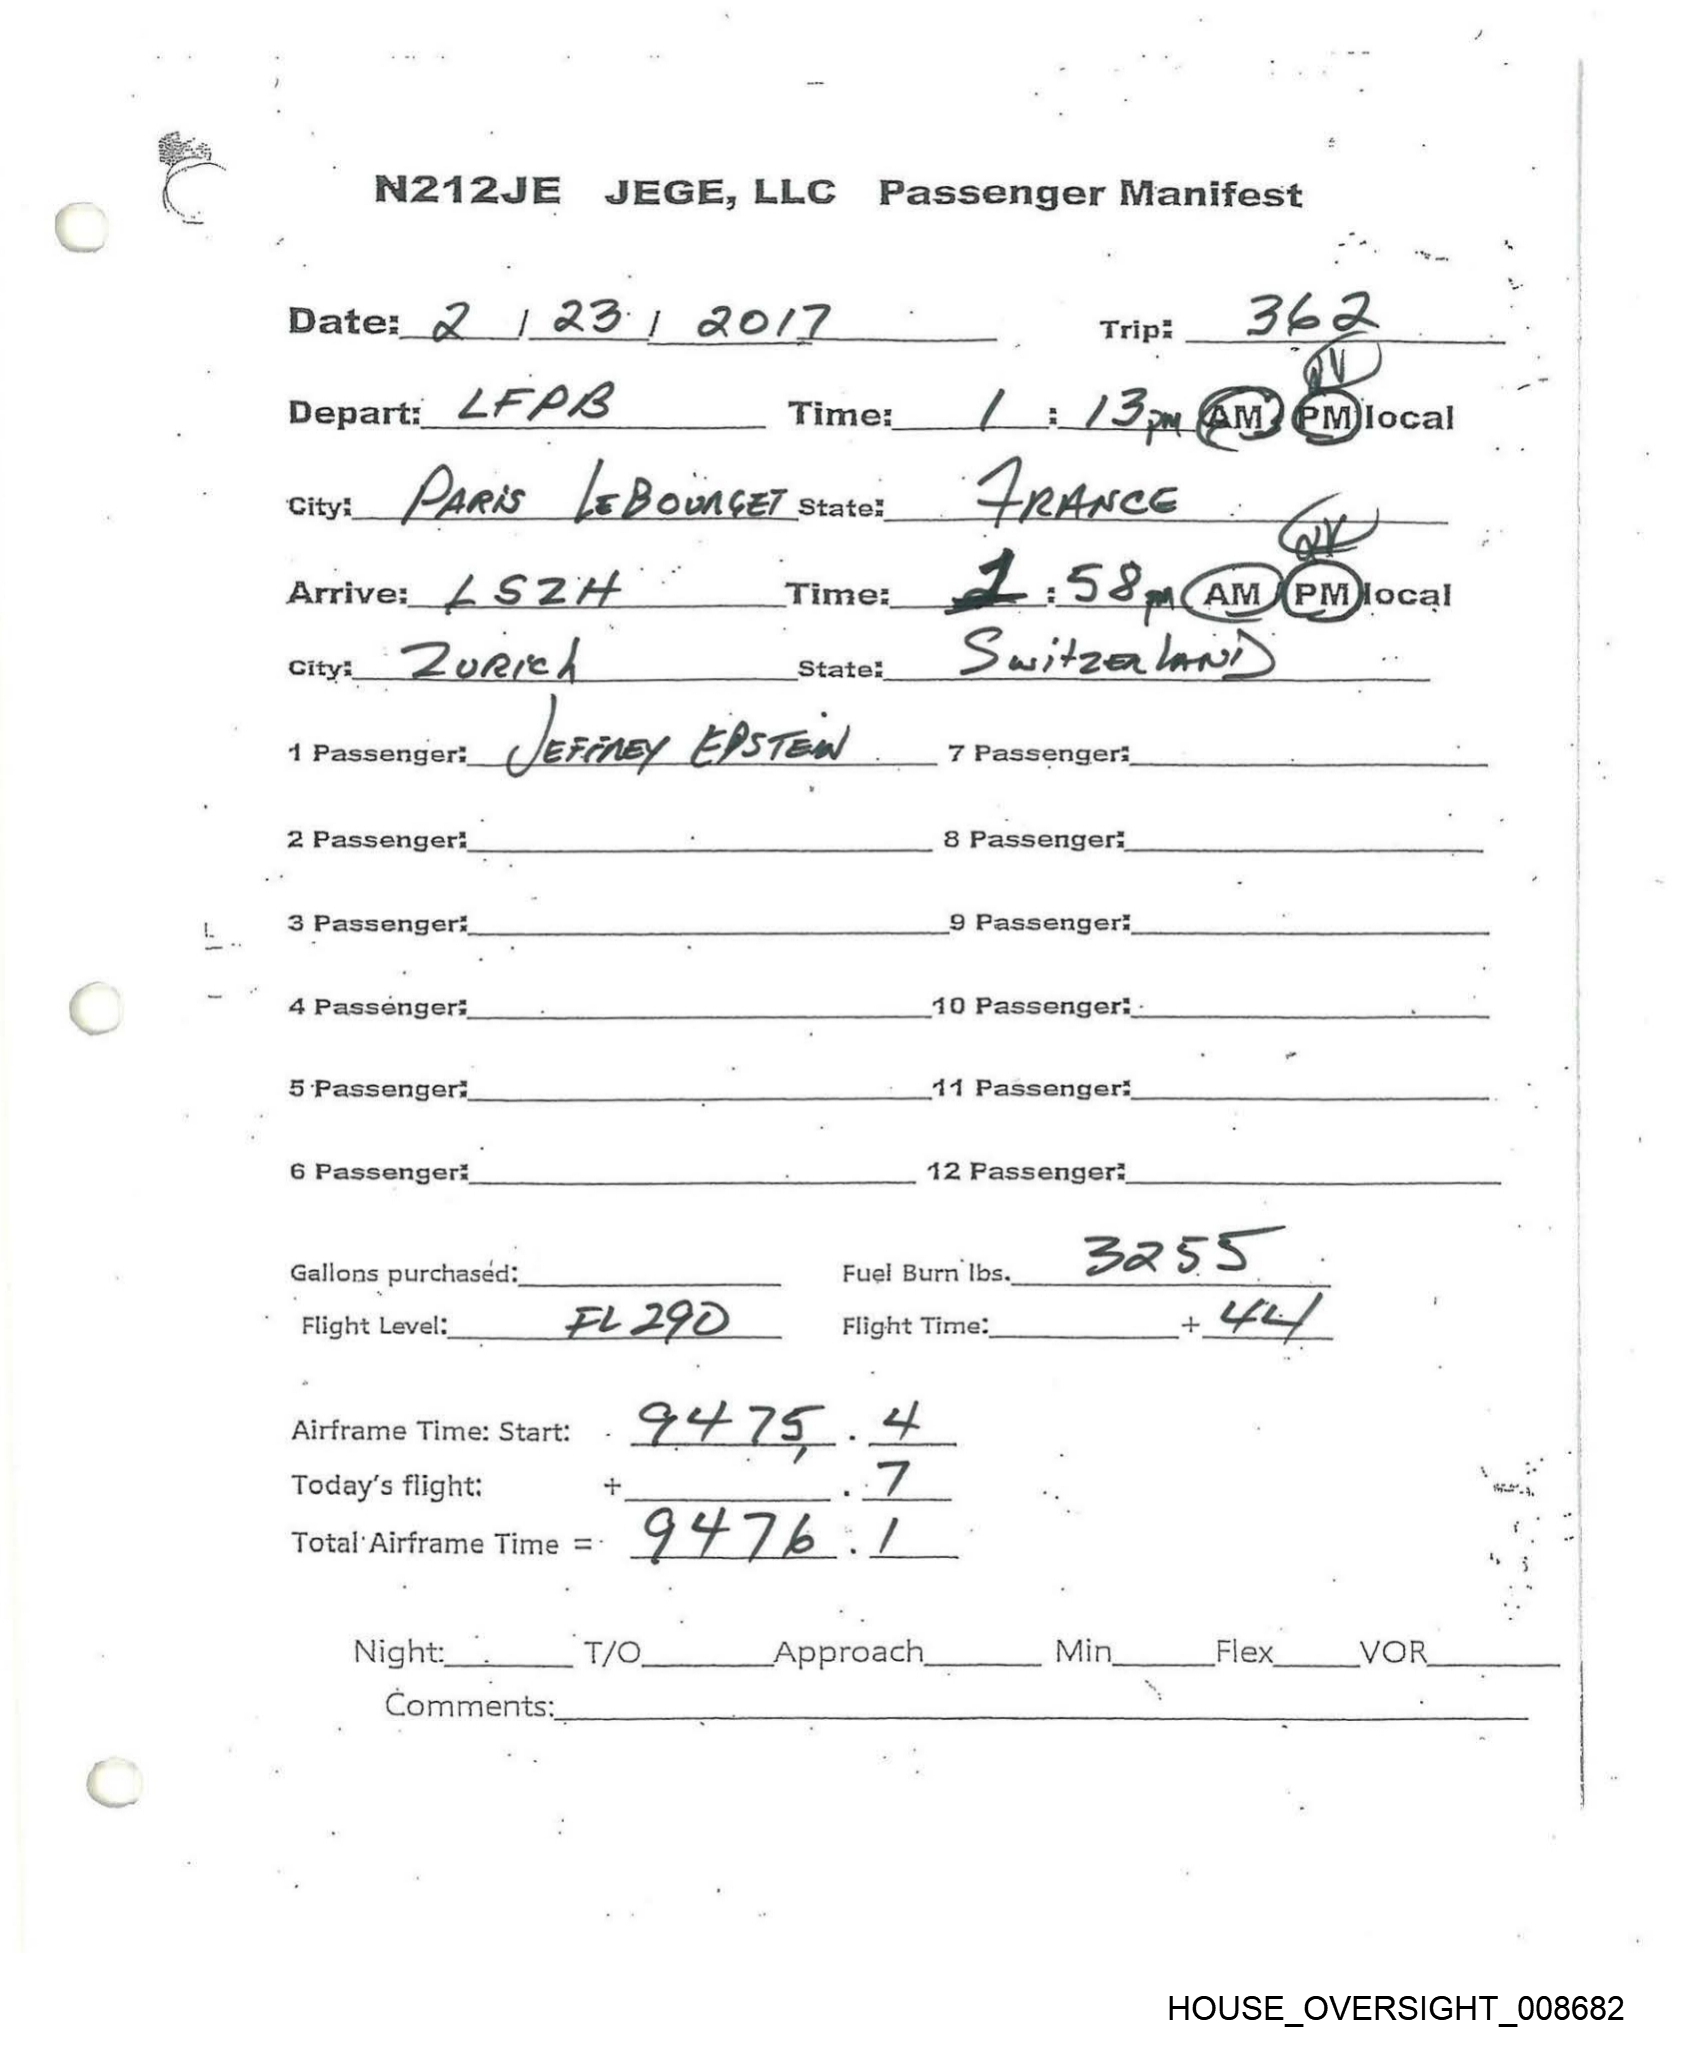 N212JE JEGE, LLC Passenger Manifest
Date: 2 / 23 / 2017 Trip: 362
Depart: LFPB Time: 1 : 13 pm AM PM local
City: PARIS LEBOURGET State: FRANCE
Arrive: LSZH Time: 1 : 58 pm AM PM local
City: ZURICH State: SWITZERLAND
1 Passenger: JEFFREY EPSTEIN 7 Passenger:
2 Passenger: 8 Passenger:
3 Passenger: 9 Passenger:
4 Passenger: 10 Passenger:
5 Passenger: 11 Passenger:
6 Passenger: 12 Passenger:
Gallons purchased: Fuel Burn lbs. 3255
Flight Level: FL 290 Flight Time: + 44
Airframe Time: Start: 9475 . 4
Today's flight: + . 7
Total Airframe Time = 9476 . 1
Night: T/O Approach Min Flex VOR
Comments:
HOUSE_OVERSIGHT_008682